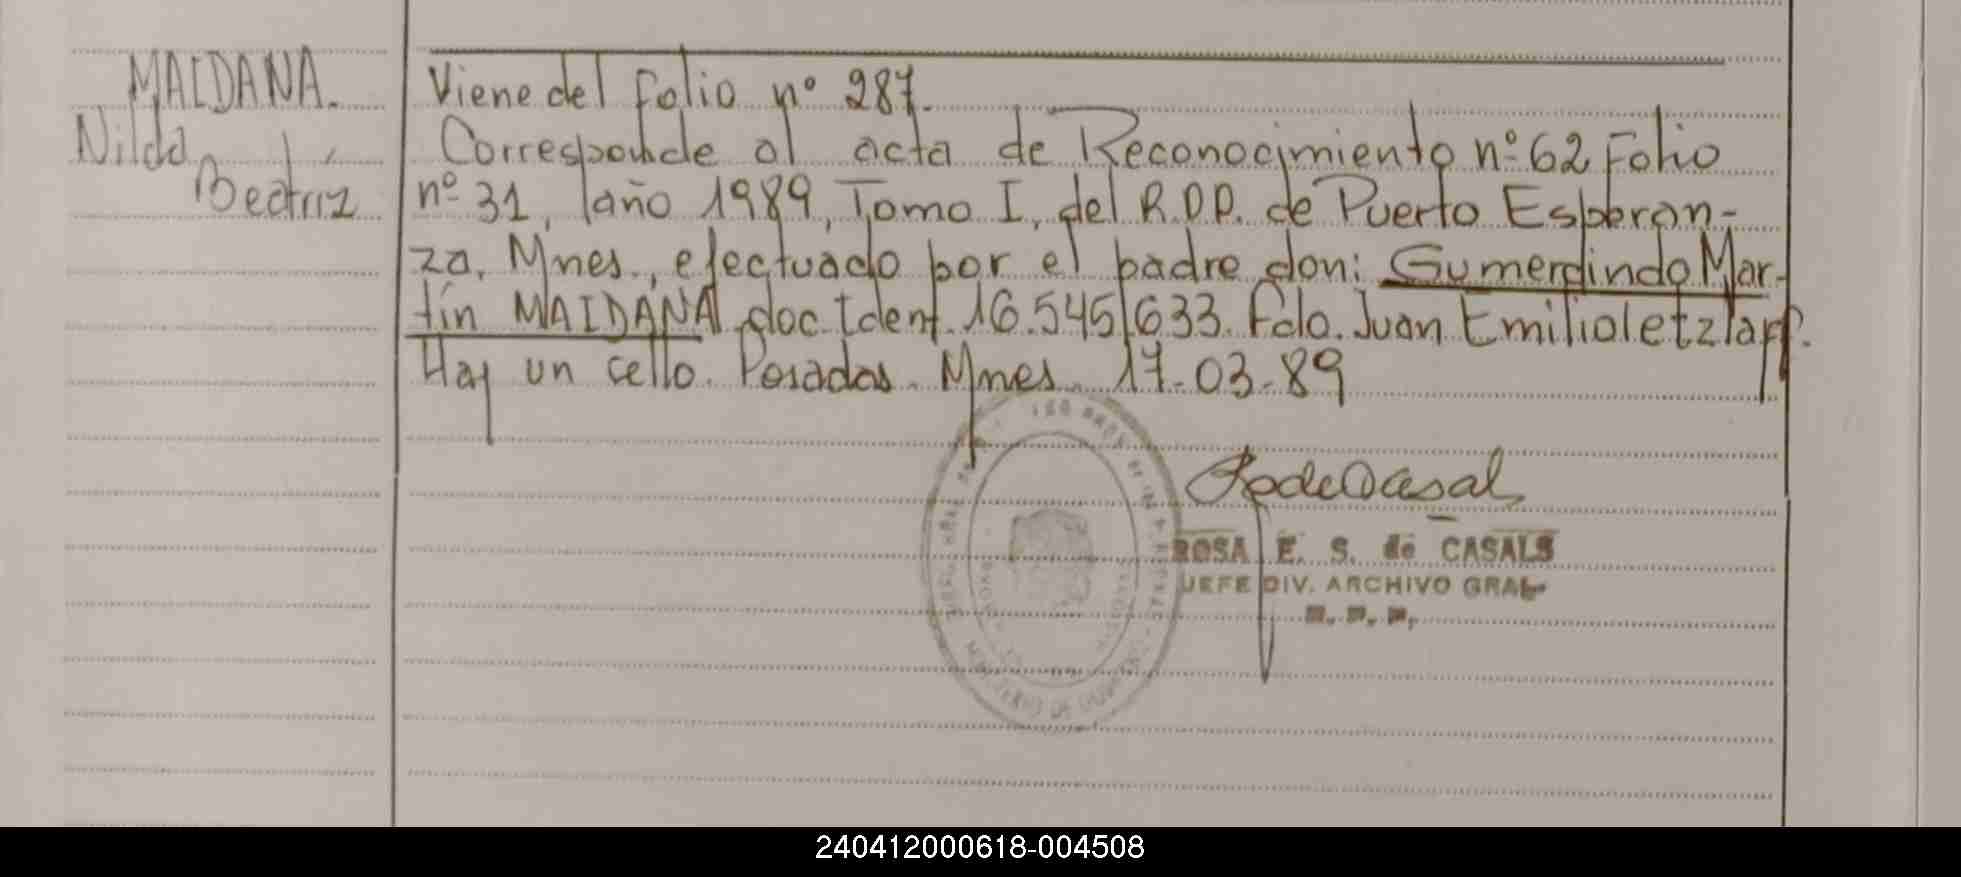 MAIDANA.
Nilda
Beatríz
Viene del folio nº 287.
Corresponde al acta de Reconocimiento nº 62 Folio
nº 31, año 1989, Tomo I, del R.P.P. de Puerto Esperan-
za, Mnes., efectuado por el padre don: Gumerdindo Mar-
tín MAIDANA doc Ident. 16.545.633. Fdo. Juan Emilio letzlaff.
Hay un cello. Posadas. Mnes. 17-03-89
ROSA E. S. de CASALS
JEFE DIV. ARCHIVO GRAL
R. P. P.
MINISTERIO DE
240412000618-004508